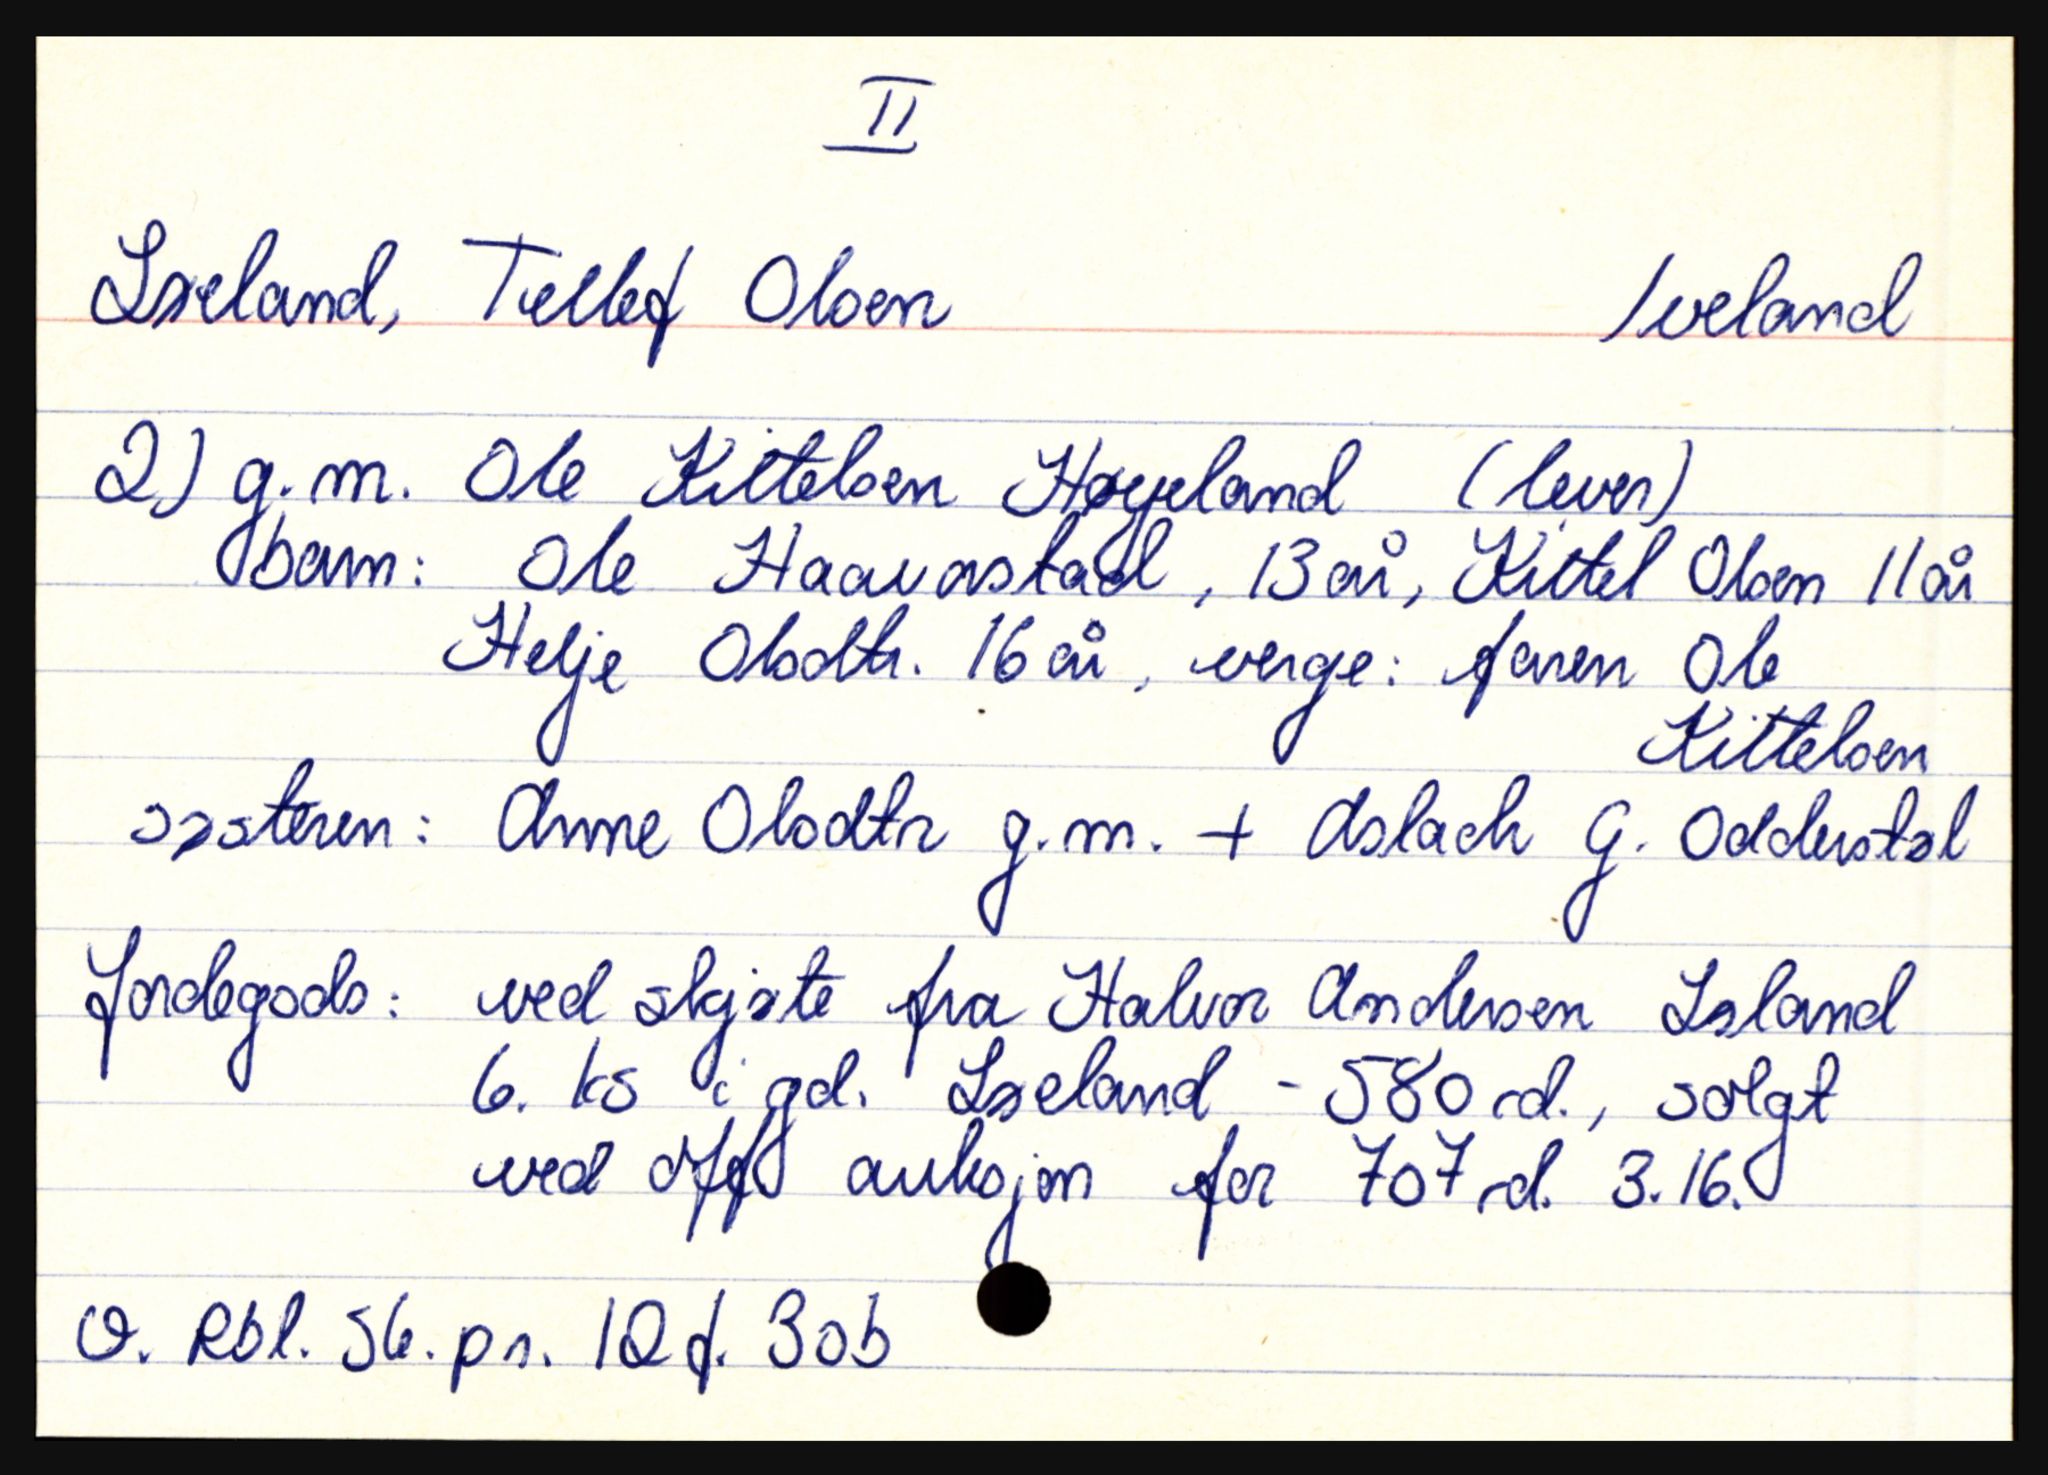 II
Løeland, Tellef Olsen Iveland
2) g.m. Ole Kittelsen Høyeland (lever)
barn: Ole Haavorstad, 13 år, Kittel Olsen 11 år
Helje Olsdtr. 16 år, verge: faren Ole
Kittelsen
søsteren: Anne Olsdtr g.m. + Aslach G. Odderstøl
Jordegods: ved skjøte fra Halvor Andersen Løland
6. ks i gd. Løeland - 580 rd., solgt
ved off auksjon for 707 rd. 3.16.
O. Rbl. S6. pr. 12 f. 30b